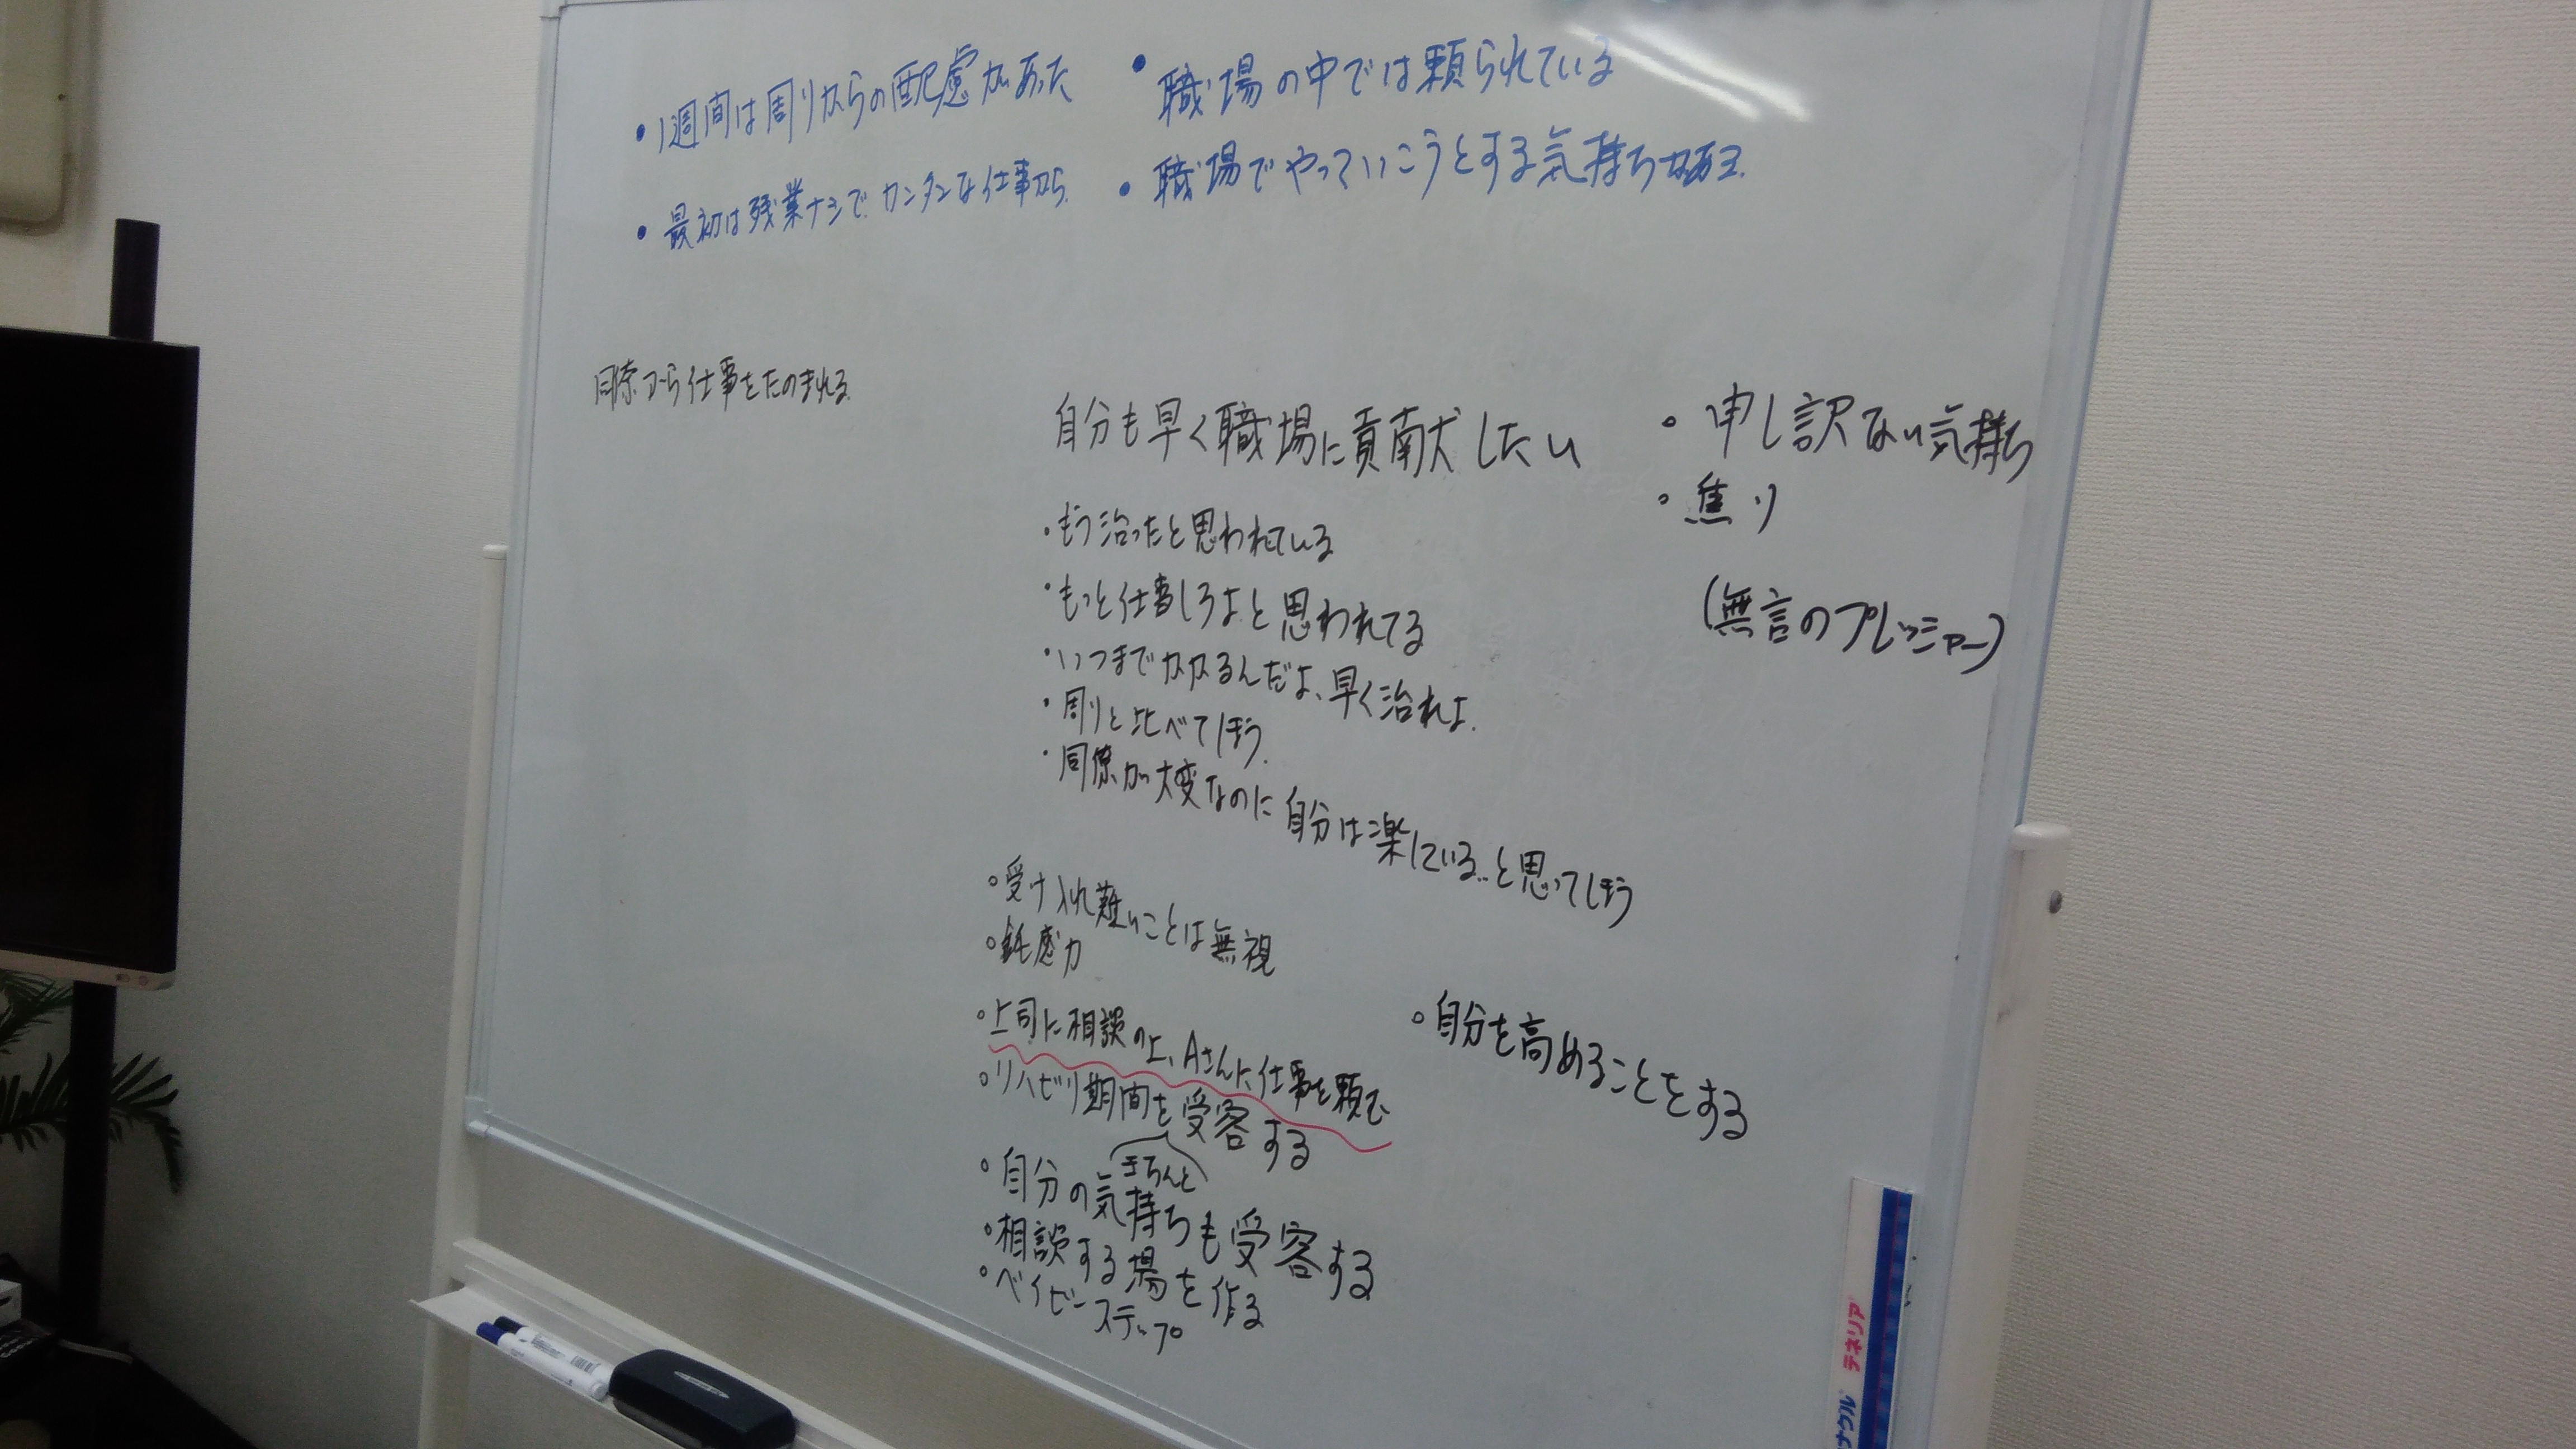 ・1週間は周りからの配慮があった
・最初は残業ナシでカンタンな仕事から
・職場の中では頼られている
・職場でやっていこうとする気持ちはある.
同僚から仕事をたのまれる.
自分も早く職場に貢献したい
・もう治ったと思われている
・もっと仕事しろよと思われてる
・いつまでかかるんだよ、早く治れよ.
・周りと比べてしまう.
・同僚が大変なのに自分は楽している..と思ってしまう
・申し訳ない気持ち
・焦り
(無言のプレッシャー)
・受け入れ難いことは無視
・鈍感力
・上司に相談の上、Aさんに仕事を頼む
・リハビリ期間を受容する
きちんと
・自分の気持ちも受容する
・相談する場を作る
・ベイビーステップ
・自分を高めることをする
テネリア